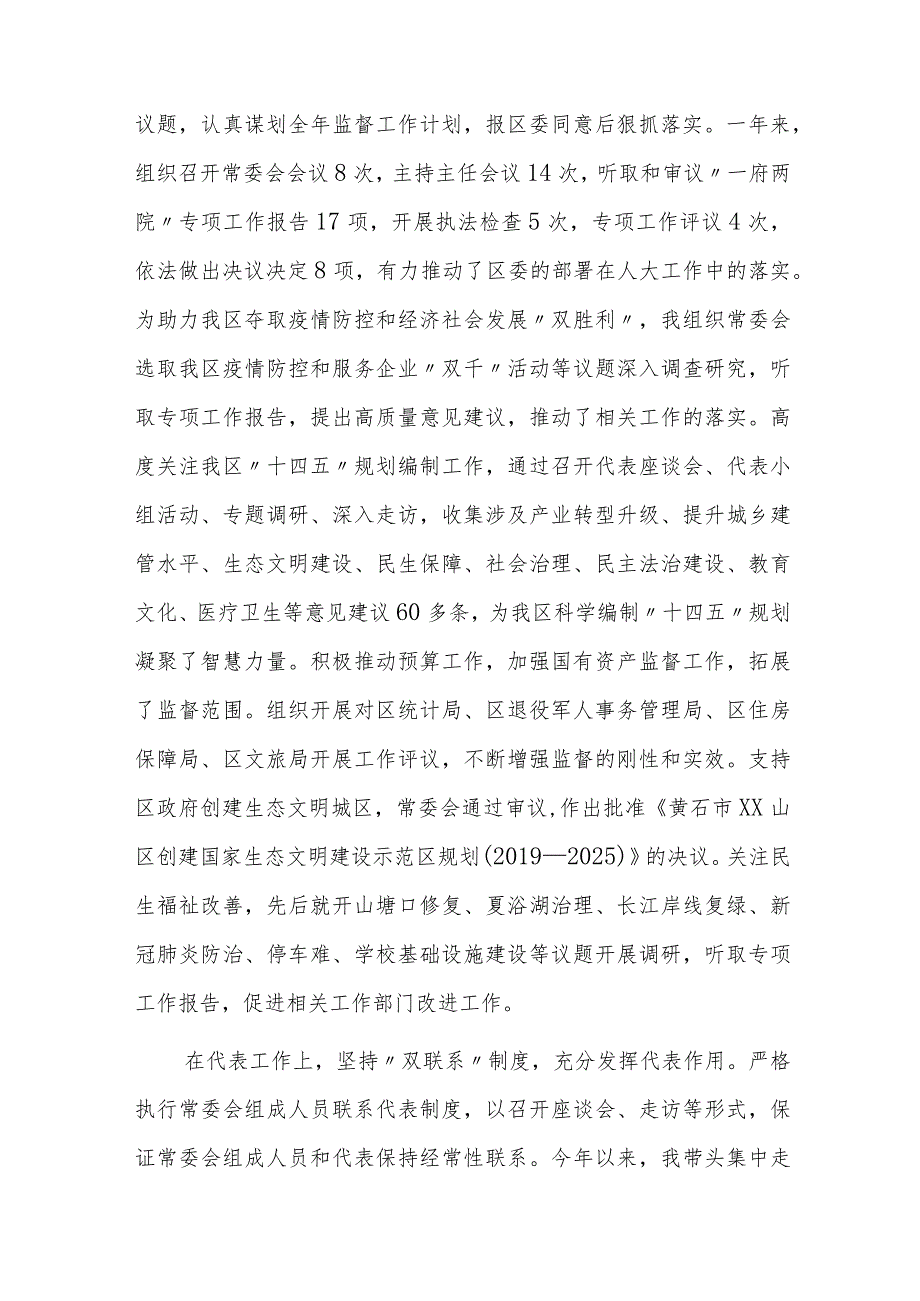 议题，认真谋划全年监督工作计划，报区委同意后狠抓落实。一年来，
组织召开常委会会议8次，主持主任会议14次，听取和审议〃一府两
院〃专项工作报告17项，开展执法检查5次，专项工作评议4次，
依法做出决议决定8项，有力推动了区委的部署在人大工作中的落实。
为助力我区夺取疫情防控和经济社会发展〃双胜利〃，我组织常委会
选取我区疫情防控和服务企业〃双千〃活动等议题深入调查研究，听
取专项工作报告，提出高质量意见建议，推动了相关工作的落实。高
度关注我区〃十四五〃规划编制工作，通过召开代表座谈会、代表小
组活动、专题调研、深入走访，收集涉及产业转型升级、提升城乡建
管水平、生态文明建设、民生保障、社会治理、民主法治建设、教育
文化、医疗卫生等意见建议60多条，为我区科学编制〃十四五〃规划
凝聚了智慧力量。积极推动预算工作，加强国有资产监督工作，拓展
了监督范围。组织开展对区统计局、区退役军人事务管理局、区住房
保障局、区文旅局开展工作评议，不断增强监督的刚性和实效。支持
区政府创建生态文明城区，常委会通过审议,作出批准《黄石市XX山
区创建国家生态文明建设示范区规划(2019—2025)》的决议。关注民
生福祉改善，先后就开山塘口修复、夏浴湖治理、长江岸线复绿、新
冠肺炎防治、停车难、学校基础设施建设等议题开展调研，听取专项
工作报告，促进相关工作部门改进工作。
在代表工作上，坚持〃双联系〃制度，充分发挥代表作用。严格
执行常委会组成人员联系代表制度，以召开座谈会、走访等形式，保
证常委会组成人员和代表保持经常性联系。今年以来，我带头集中走